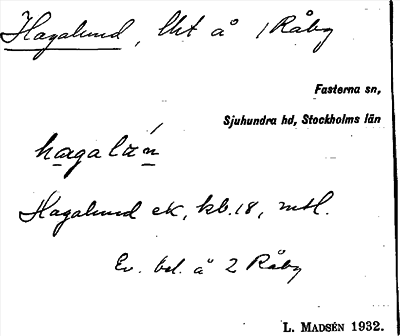 Hagalund, lht å 1 Råby
Fasterna sn,
Sjuhundra hd, Stockholms län
hagalun
Hagalund ek, kb. 18, mtl.
Ev. bel. å 2 Råby
L. MADSÉN 1932.